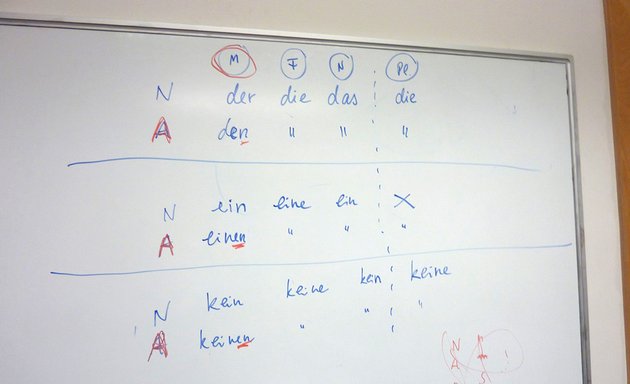 M F N Pl
N der die das die
A den " " "
N ein eine ein X
A einen " " "
N kein keine kein keine
A keinen " " "
N
A